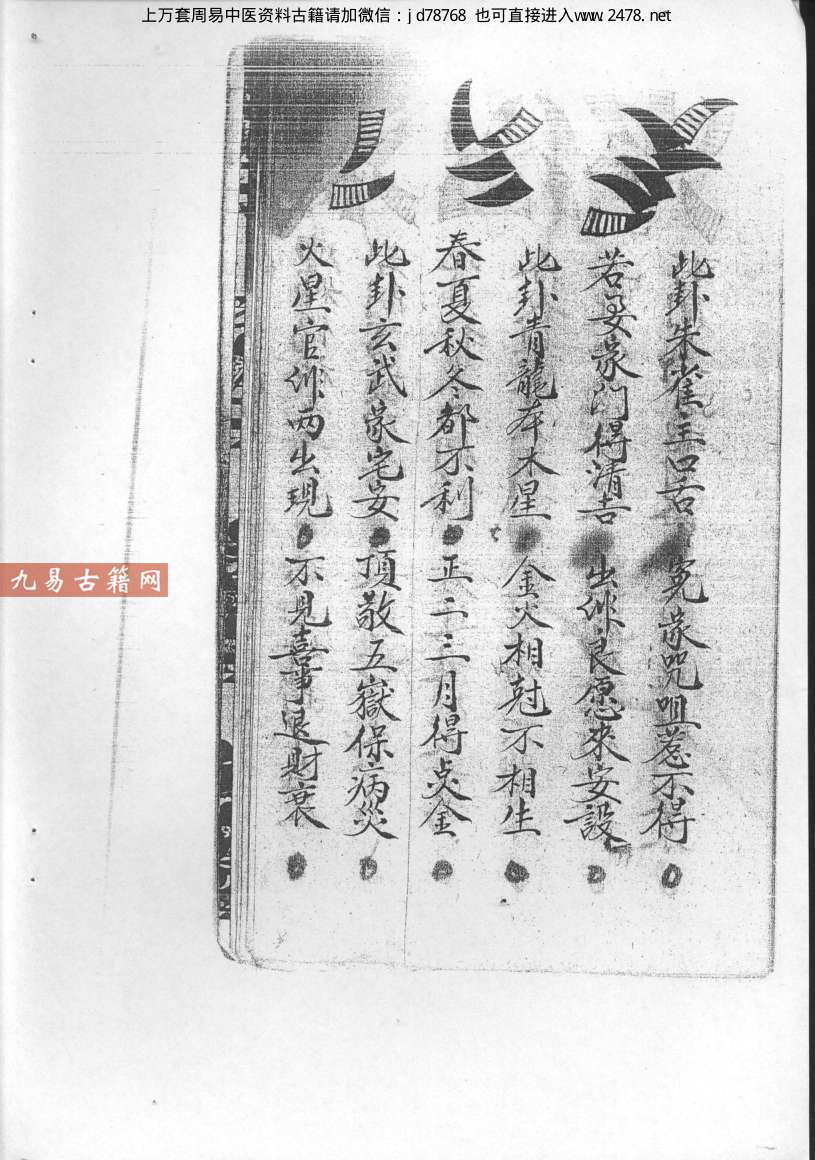 上万套周易中医资料古籍请加微信：jd78768 也可直接进入www.2478.net
此卦朱雀主口舌 冤家咒咀惹不得
若要家门得清吉 出你良愿来安設
此卦青龍本木星 金火相尅不相生
春夏秋冬都不利 正二三月得点金
此卦玄武家宅安 頂敬五嶽保病災
火星官你两出現 不見喜事退財衰
九易古籍网